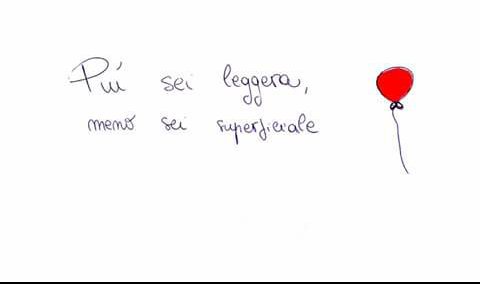 Più sei leggera,
meno sei superficiale